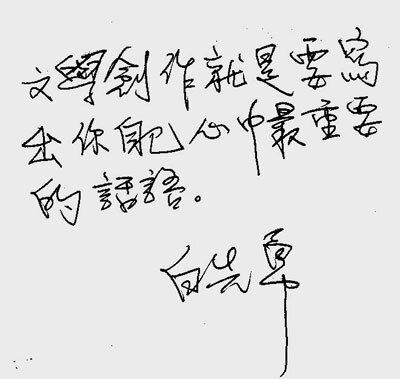 文學創作就是要寫
出你自己心中最重要
的話語。
白先勇